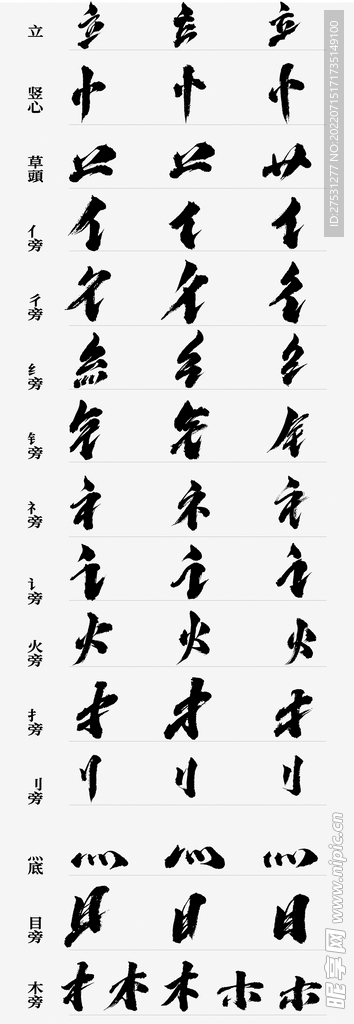 立
竖心
草頭
亻旁
彳旁
纟旁
钅旁
礻旁
讠旁
火旁
扌旁
刂旁
灬底
目旁
木旁
ID:27531277 NO:20220715171735149100
昵享网 www.nipic.cn